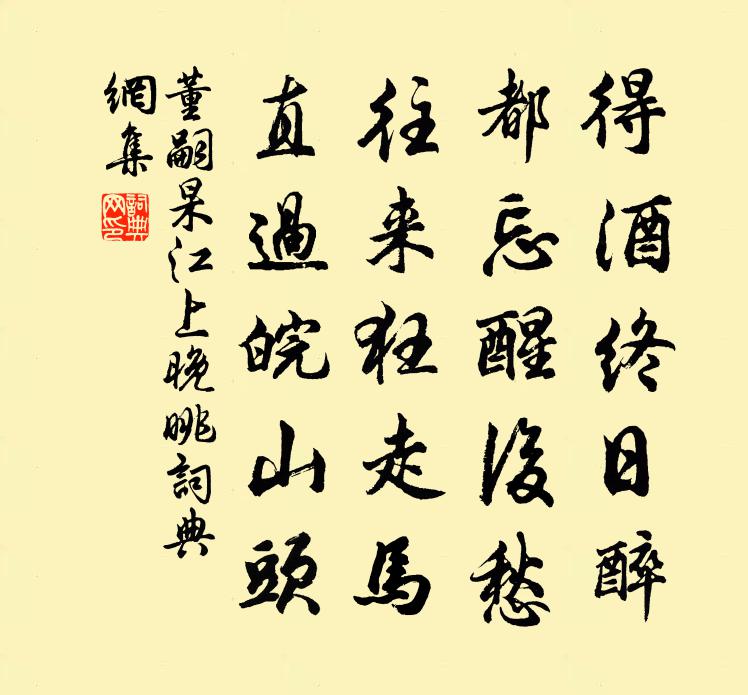 得酒终日醉
都忘醒後愁
往来狂走馬
直過皖山頭
董嗣杲江上晚眺詞典
網集
詞典
网印